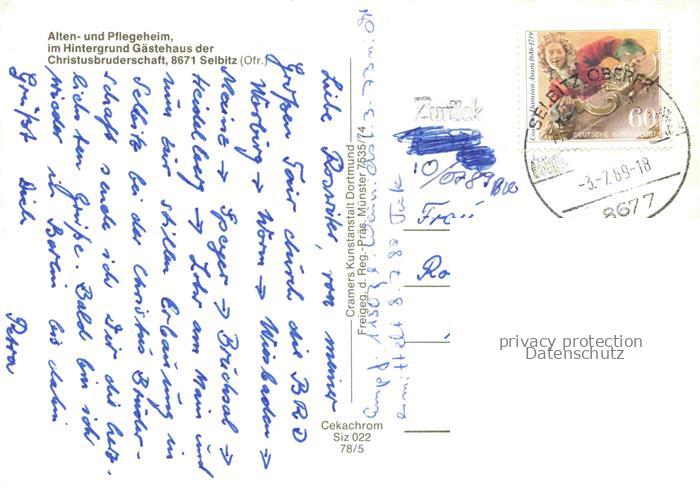 Alten- und Pflegeheim,
im Hintergrund Gästehaus der
Christusbruderschaft, 8671 Selbitz (Ofr.)
Liebe von meiner
Großen Tour durch die BRD
→ Worms → Wiesbaden →
Mainz → Speyer → Bruchsal →
Heidelberg → Lohr am Main und
nun zur stillen Erbauung in
Selbitz bei der Christus Bruder-
schaft sende ich Dir die herz-
lichsten Grüße. Bald bin ich
wieder in Berlin bis dahin
Grüßt Dich
Petra
Cramers Kunstanstalt Dortmund
Freigeg. d. Reg.-Präs. Münster 7535/74
Cekachrom
Siz 022
78/5
Zurück
Frau
Ro
ermittelt 8.7.89
Cosmas Damian Asam 1686-1739
60
DEUTSCHE BUNDESPOST
SELBITZ, OBERFR
-3.-7.89-18
8677
privacy protection
Datenschutz